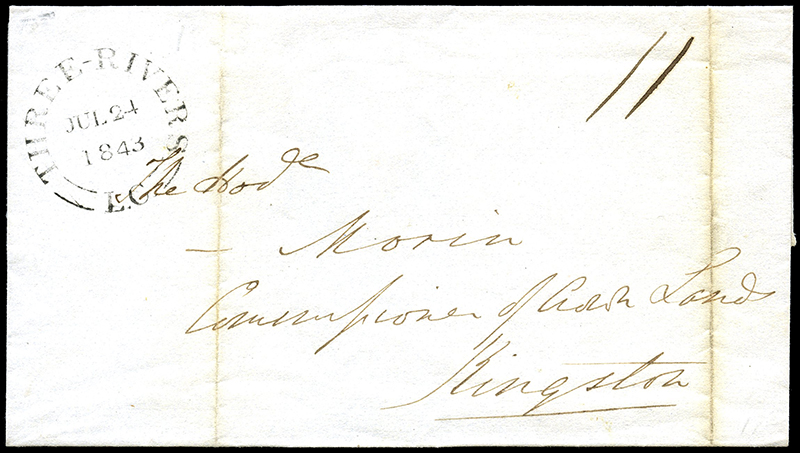 THREE-RIVERS
JUL 24
1843
L.C.
11
The Hod<sup>le</sup>
— Morin
Commissioner of Crown Lands
Kingston